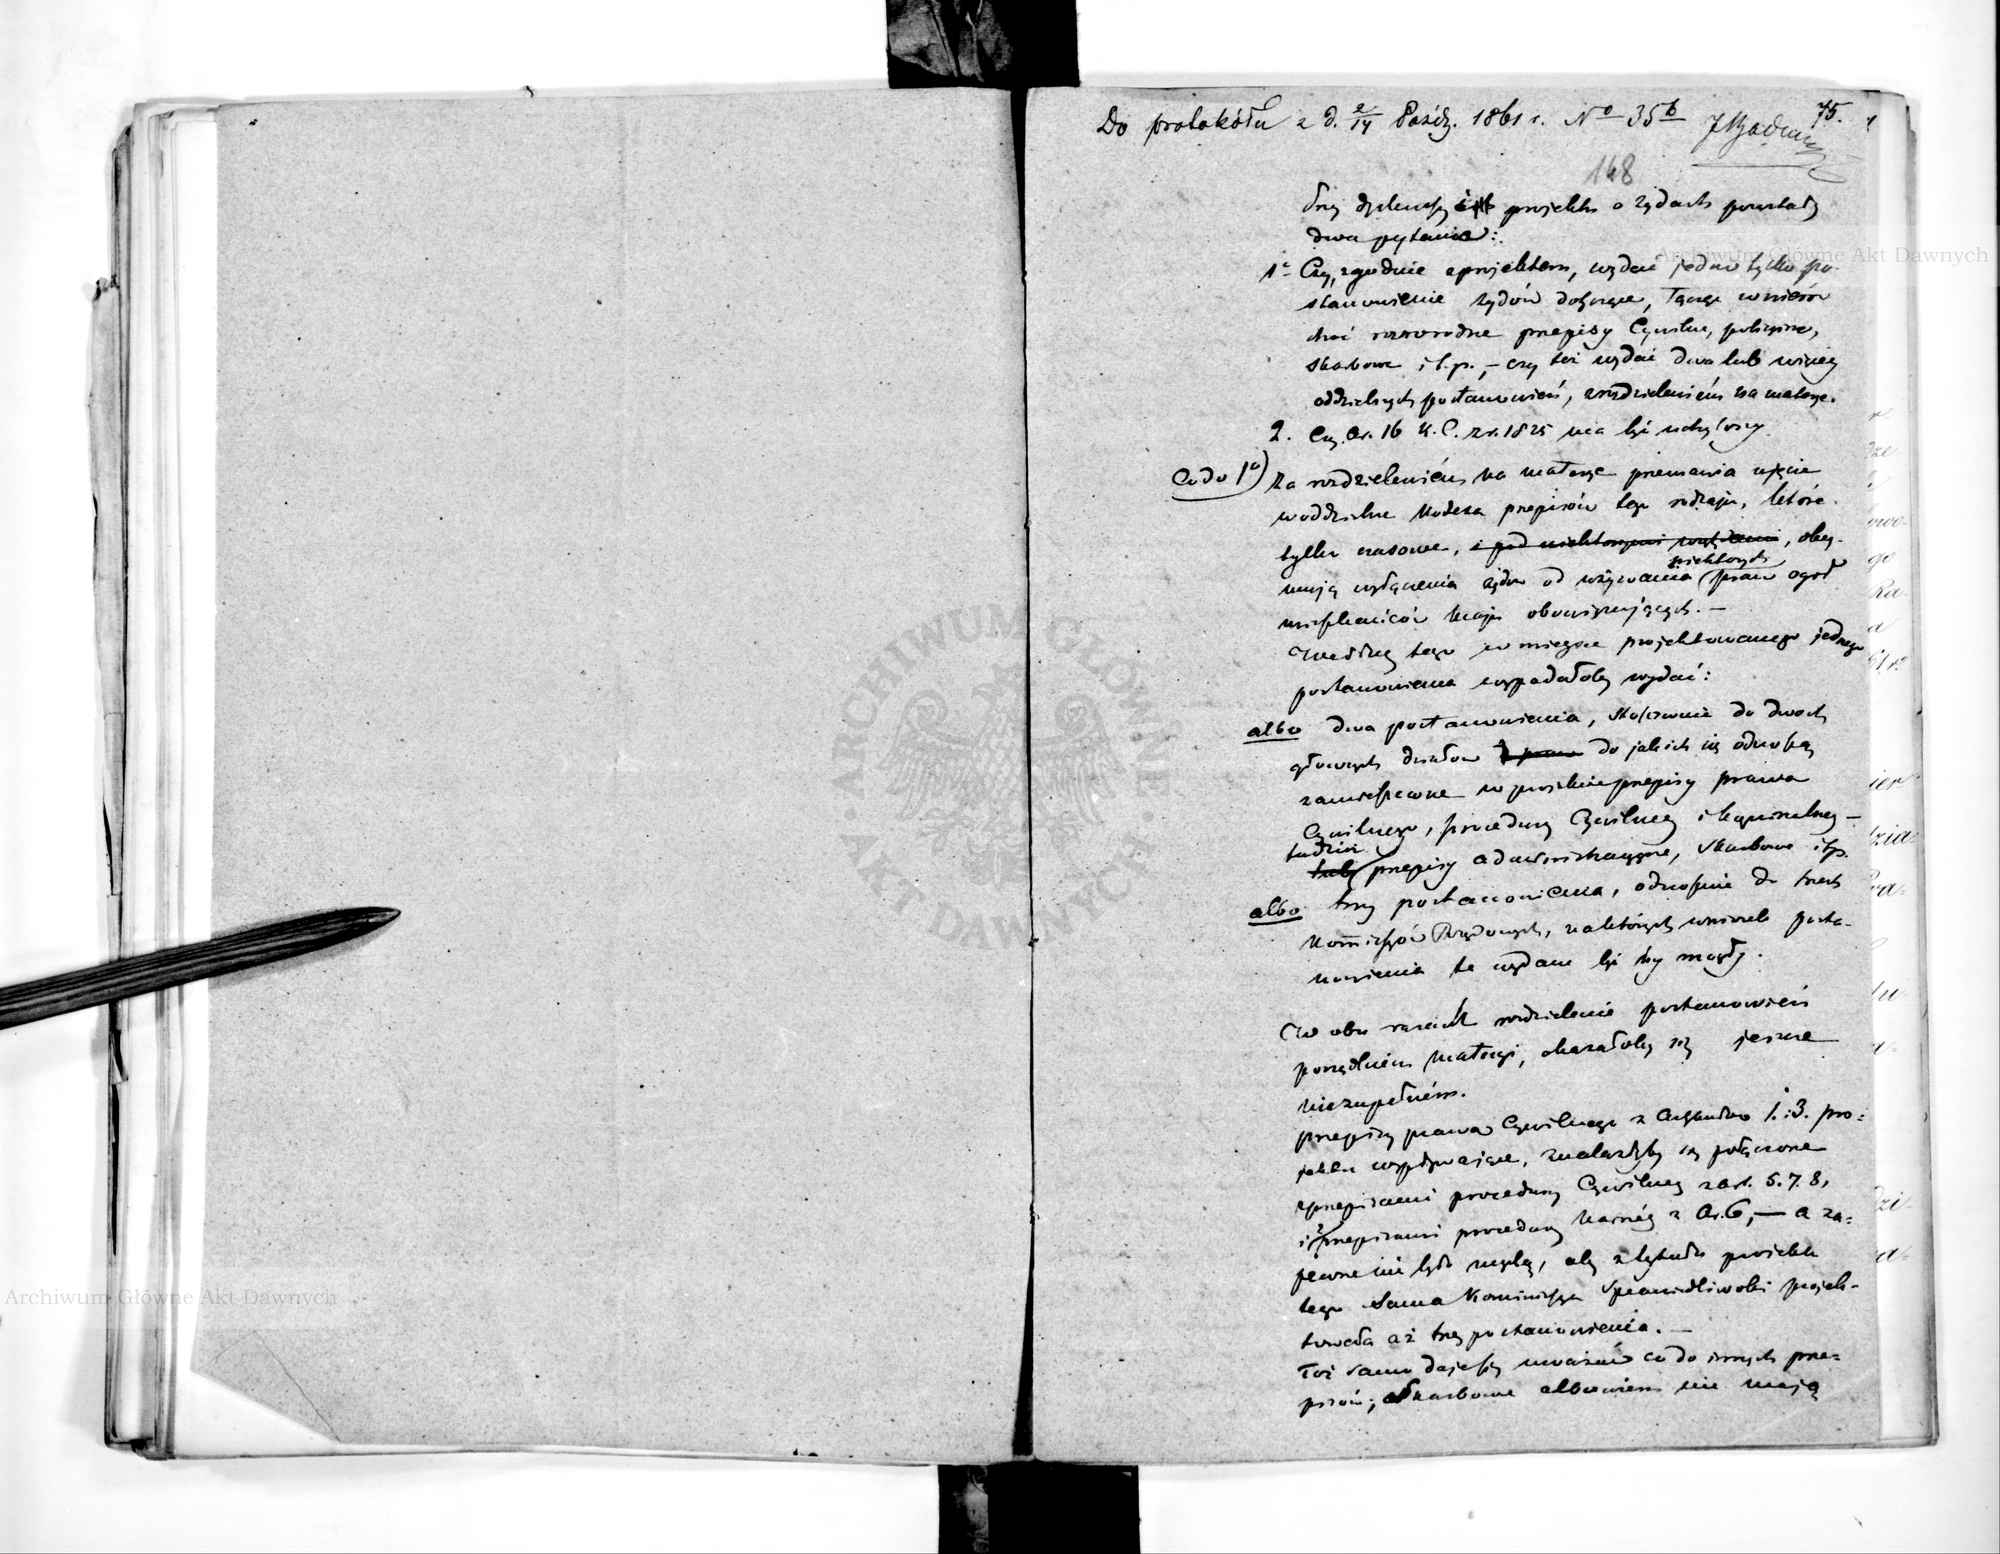 Do protokółu z d. 2/14 Paźdz. 1861 r. No 35b 75.
148
Przy dyskusji projektu o żydach powstały
dwa pytania:
1e Czy, zgodnie z projektem, wydać jedno tylko po-
stanowienie żydów dotyczące, łącząc w niem
choć różnorodne przepisy Cywilne, policyjne,
skarbowe i t.p., – czy też wydać dwa lub więcej
oddzielnych postanowień, z rozdzieleniem na materye.
2. Czy Ar. 16 K.C. z r. 1825 ma być uchylony
Co do 1o) Za rozdzieleniem na materye przemawia ujęcie
w oddzielne Kodexa przepisów tego rodzaju, które
tylko czasowe, i pod niektoremi względami, obej-
mują wyłączenia żydów od używania niektorych praw ogół
mieszkańców kraju obowiązujących. –
Według tego w miejsce projektowanego jednego
postanowienia wypadałoby wydać:
albo dwa postanowienia, stosownie do dwoch
głownych działów do jakich się odnoszą
zamieszczone w projekcie przepisy prawa
Cywilnego, procedury Cywilnej i kryminalnej –
tudzież
lub przepisy administracyjne, skarbowe i t.p.
albo trzy postanowienia, odnośnie do trzech
Kommissyów Rządowych, na których wniosek posta-
nowienia te wydane być by mogły.
W obu razach rozdzielenie postanowień
porządkiem materyi, okazałoby się jeszcze
niezupełném.
przepisy prawa Cywilnego z Artykułów 1. i 3. pro=
jektu wypływające, znalazłyby się połączone
z przepisami procedury Cywilnej z art. 5. 7. 8,
i z przepisami procedury karnéj z Ar. 6, – a za=
pewne nie było myślą, aby z tytułu projektu
tego sama Kommissya Sprawiedliwości projek-
towała aż trzy postanowienia. –
Toż samo daje się uważać co do innych prze=
pisów; Skarbowe albowiem nie mają
Archiwum Główne Akt Dawnych
Archiwum Główne Akt Dawnych
ARCHIWUM GŁÓWNE AKT DAWNYCH